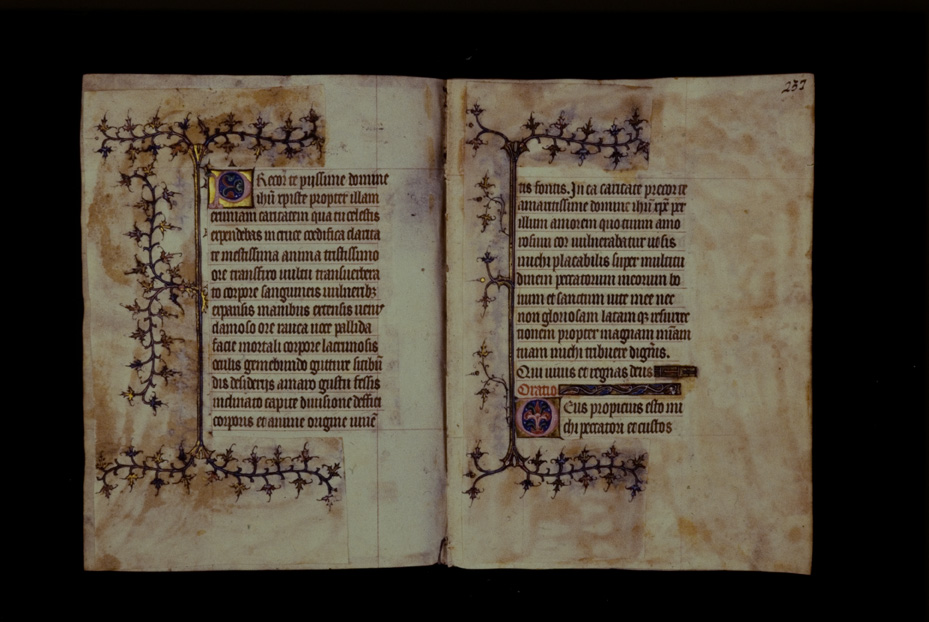 Precor te pijssime domine
ihũ xpiste propter illam
eximiam caritatem qua tu celestis
expendebas in cruce edifica
te mestissima anima tristissimo
ore transfixo vultu transverbera
to corpore sanguineis vulneribꝫ
expansis manibus extensis
clamoso ore rauca voce pallida
facie mortali corpore lacrimosis
oculis gemebundo gutture sitibũ
dis desiderijs amaro gustu fessis
inclinato capite divisione
corporis et anime origine
232
tis fontis. In ea caritate precor te
amantissime domine ihũ xp̃e per
illum amorem quo tuum amo
rosum cor vulnerabatur ut sis
michi placabilis super multitu
dinem peccatorum meorum bo
num et sanctum vite mee
non gloriosam letam qꝫ resurre
tionem propter magnam m̃iam
tuam michi tribuere digñis.
Qui vivis et regnas deus
Oratio
Deus propicius esto mi
chi peccatori et custos